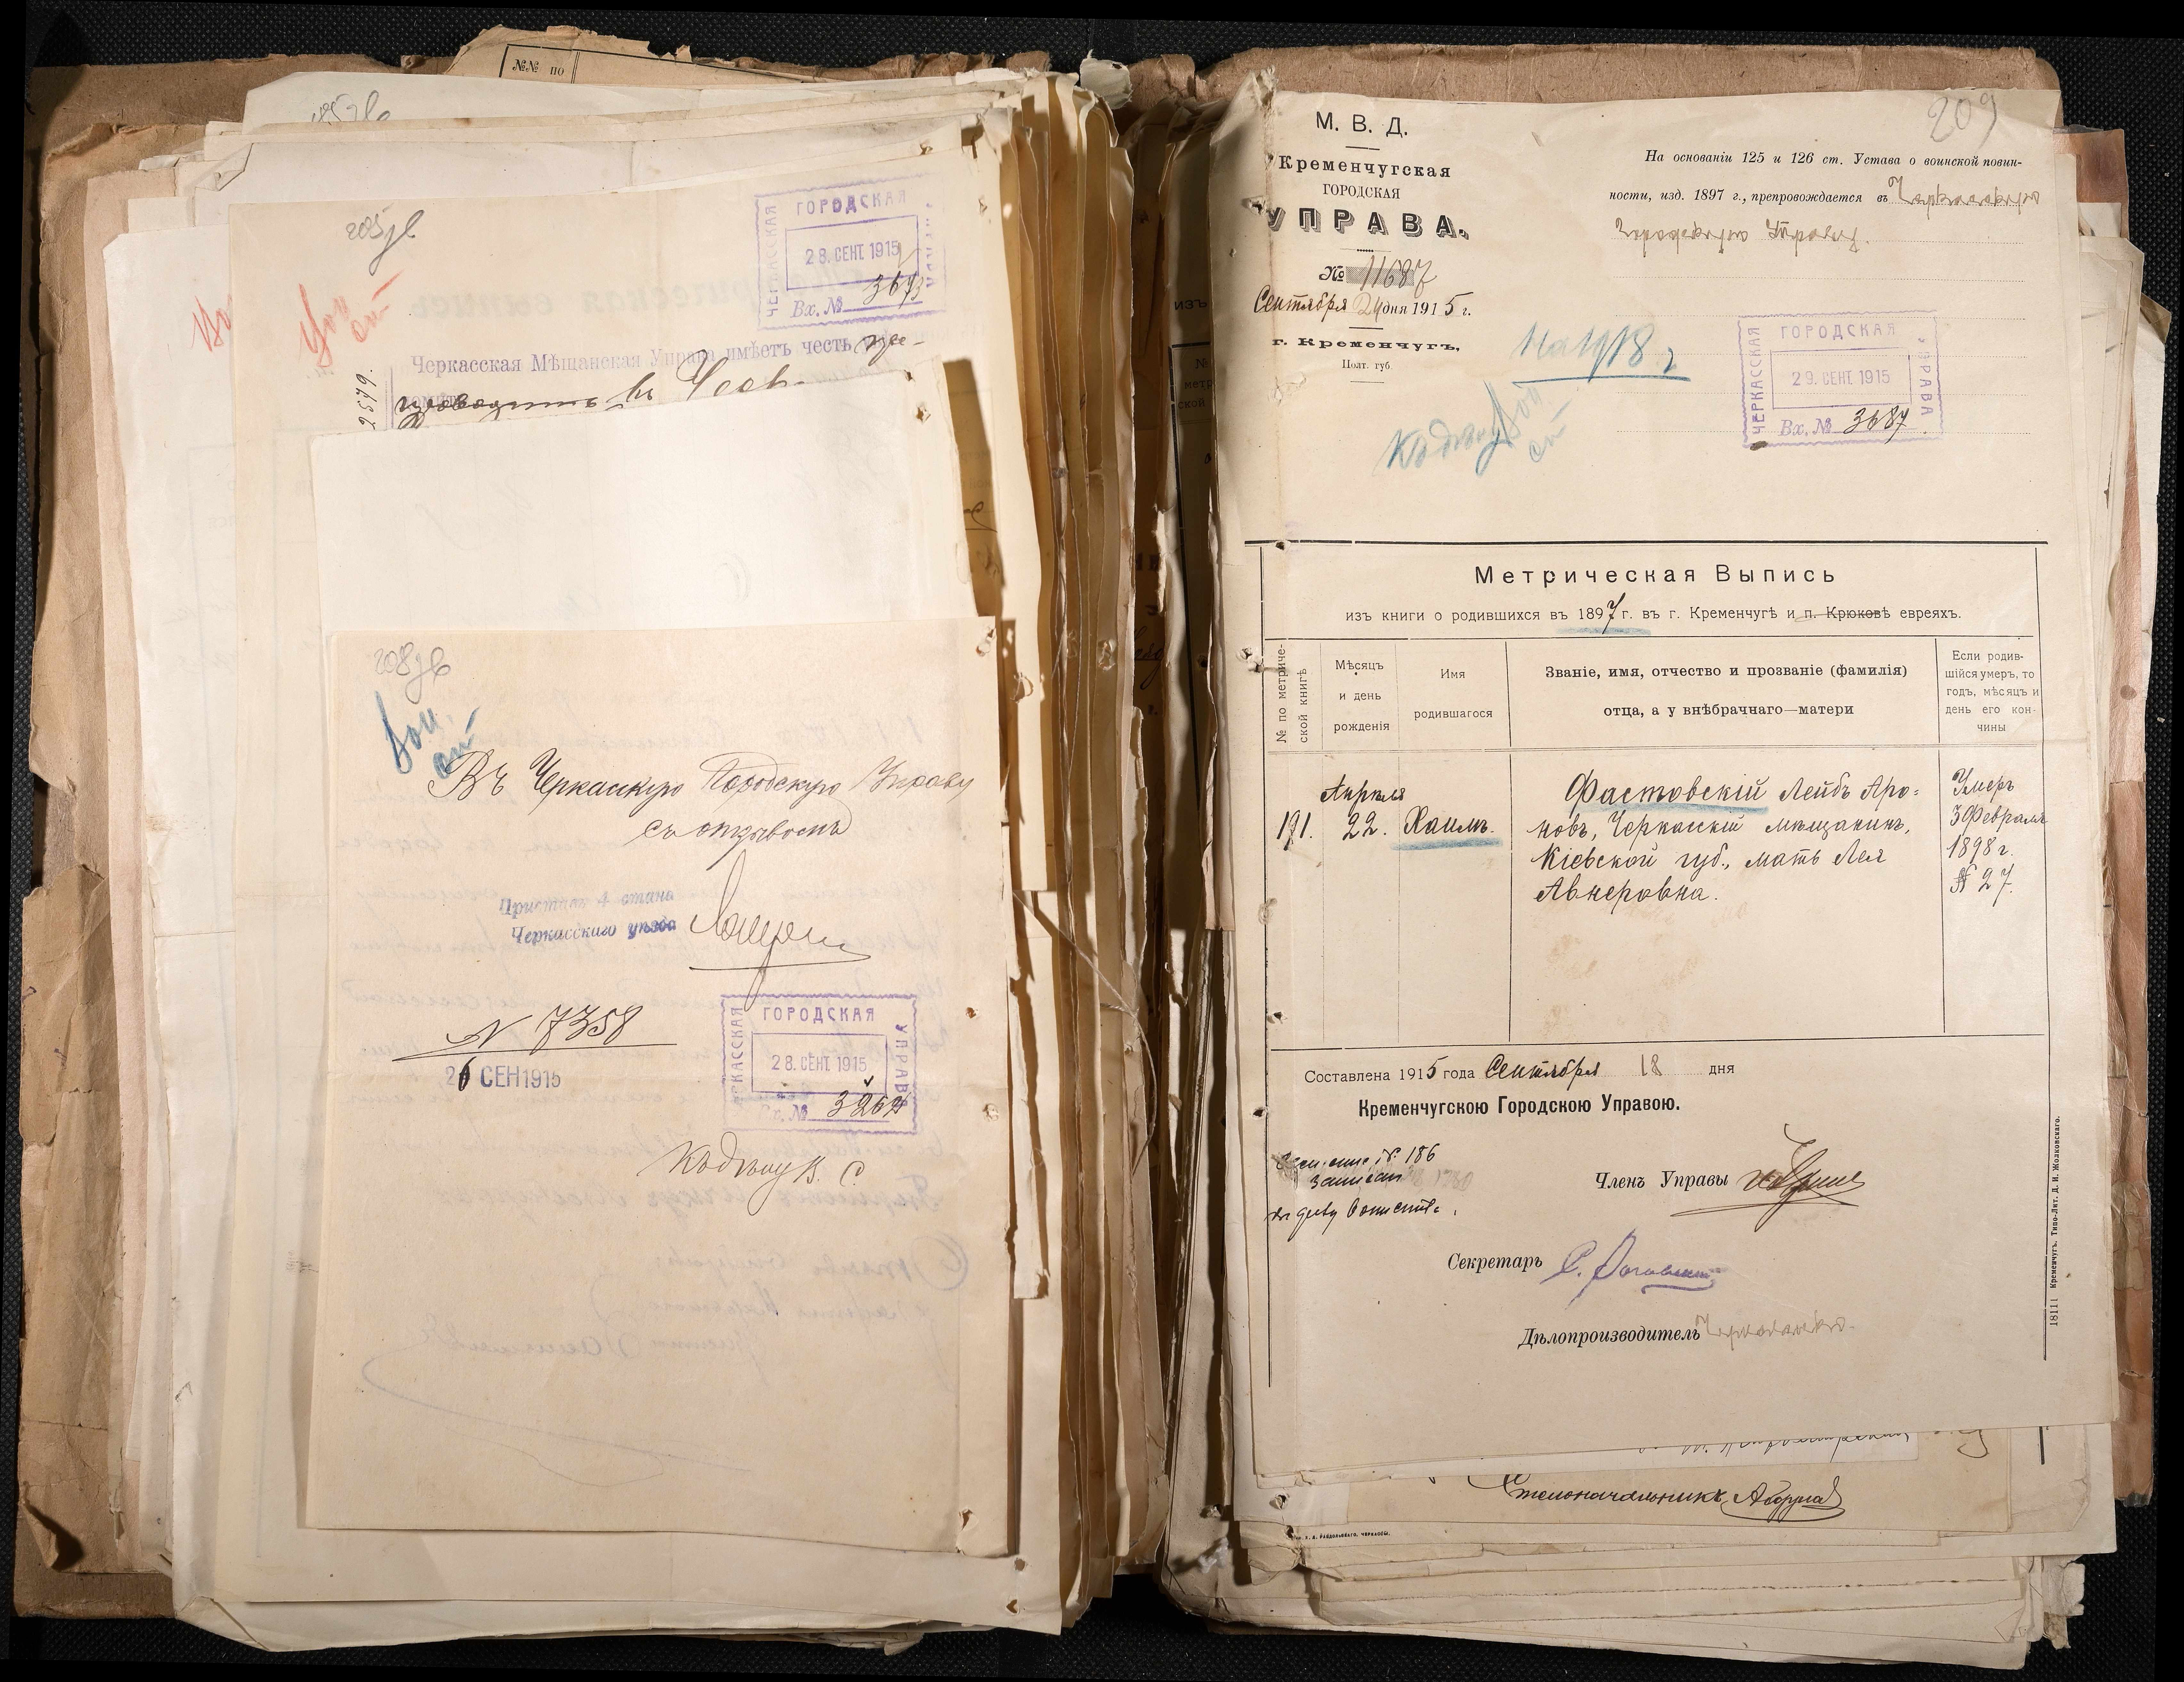 №№ по
205 об
ЧЕРКАССКАЯ ГОРОДСКАЯ УПРАВА
28. СЕНТ. 1915
Вх. № 3673
Черкасская Мѣщанская Управа имѣетъ честь пре-
2579.
208 об
Въ Черкасскую Городскую Управу
съ отзывомъ
Приставъ 4 стана
Черкасскаго уѣзда
N 7358
26 СЕН 1915
ЧЕРКАССКАЯ ГОРОДСКАЯ УПРАВА
28. СЕНТ. 1915
Вх. №
Къ дѣлу В. С.
209
М. В. Д.
Кременчугская
ГОРОДСКАЯ
УПРАВА.
№ 11687
Сентября 24 дня 1915 г.
г. Кременчугъ,
Полт. губ.
На основаніи 125 и 126 ст. Устава о воинской повин-
ности, изд. 1897 г., препровождается въ Черкасскую
Городскую Управу.
На 1918 г
Къ дѣлу
ЧЕРКАССКАЯ ГОРОДСКАЯ УПРАВА
29. СЕНТ. 1915
Вх. № 3687
Метрическая Выпись
изъ книги о родившихся въ 1897 г. въ г. Кременчугѣ и п. Крюковѣ евреяхъ.
№ по метриче-
ской книгѣ
Мѣсяцъ
и день
рожденія
Имя
родившагося
Званіе, имя, отчество и прозваніе (фамилія)
отца, а у внѣбрачнаго—матери
Если родив-
шійся умеръ, то
годъ, мѣсяцъ и
день его кон-
чины
191.
Апрѣля
22.
Хаимъ.
Фастовскій Лейбъ Аро-
новъ, Черкасскій мѣщанинъ,
Кіевской губ., мать Лея
Авнеровна.
Умеръ
3 Февраля
1898 г.
№ 27.
Составлена 1915 года Сентября 18 дня
Кременчугскою Городскою Управою.
№ 186
записан
Членъ Управы
Секретарь
Дѣлопроизводитель
18111 Кременчугъ. Типо-Лит. Д. И. Жолковскаго.
Столоначальникъ